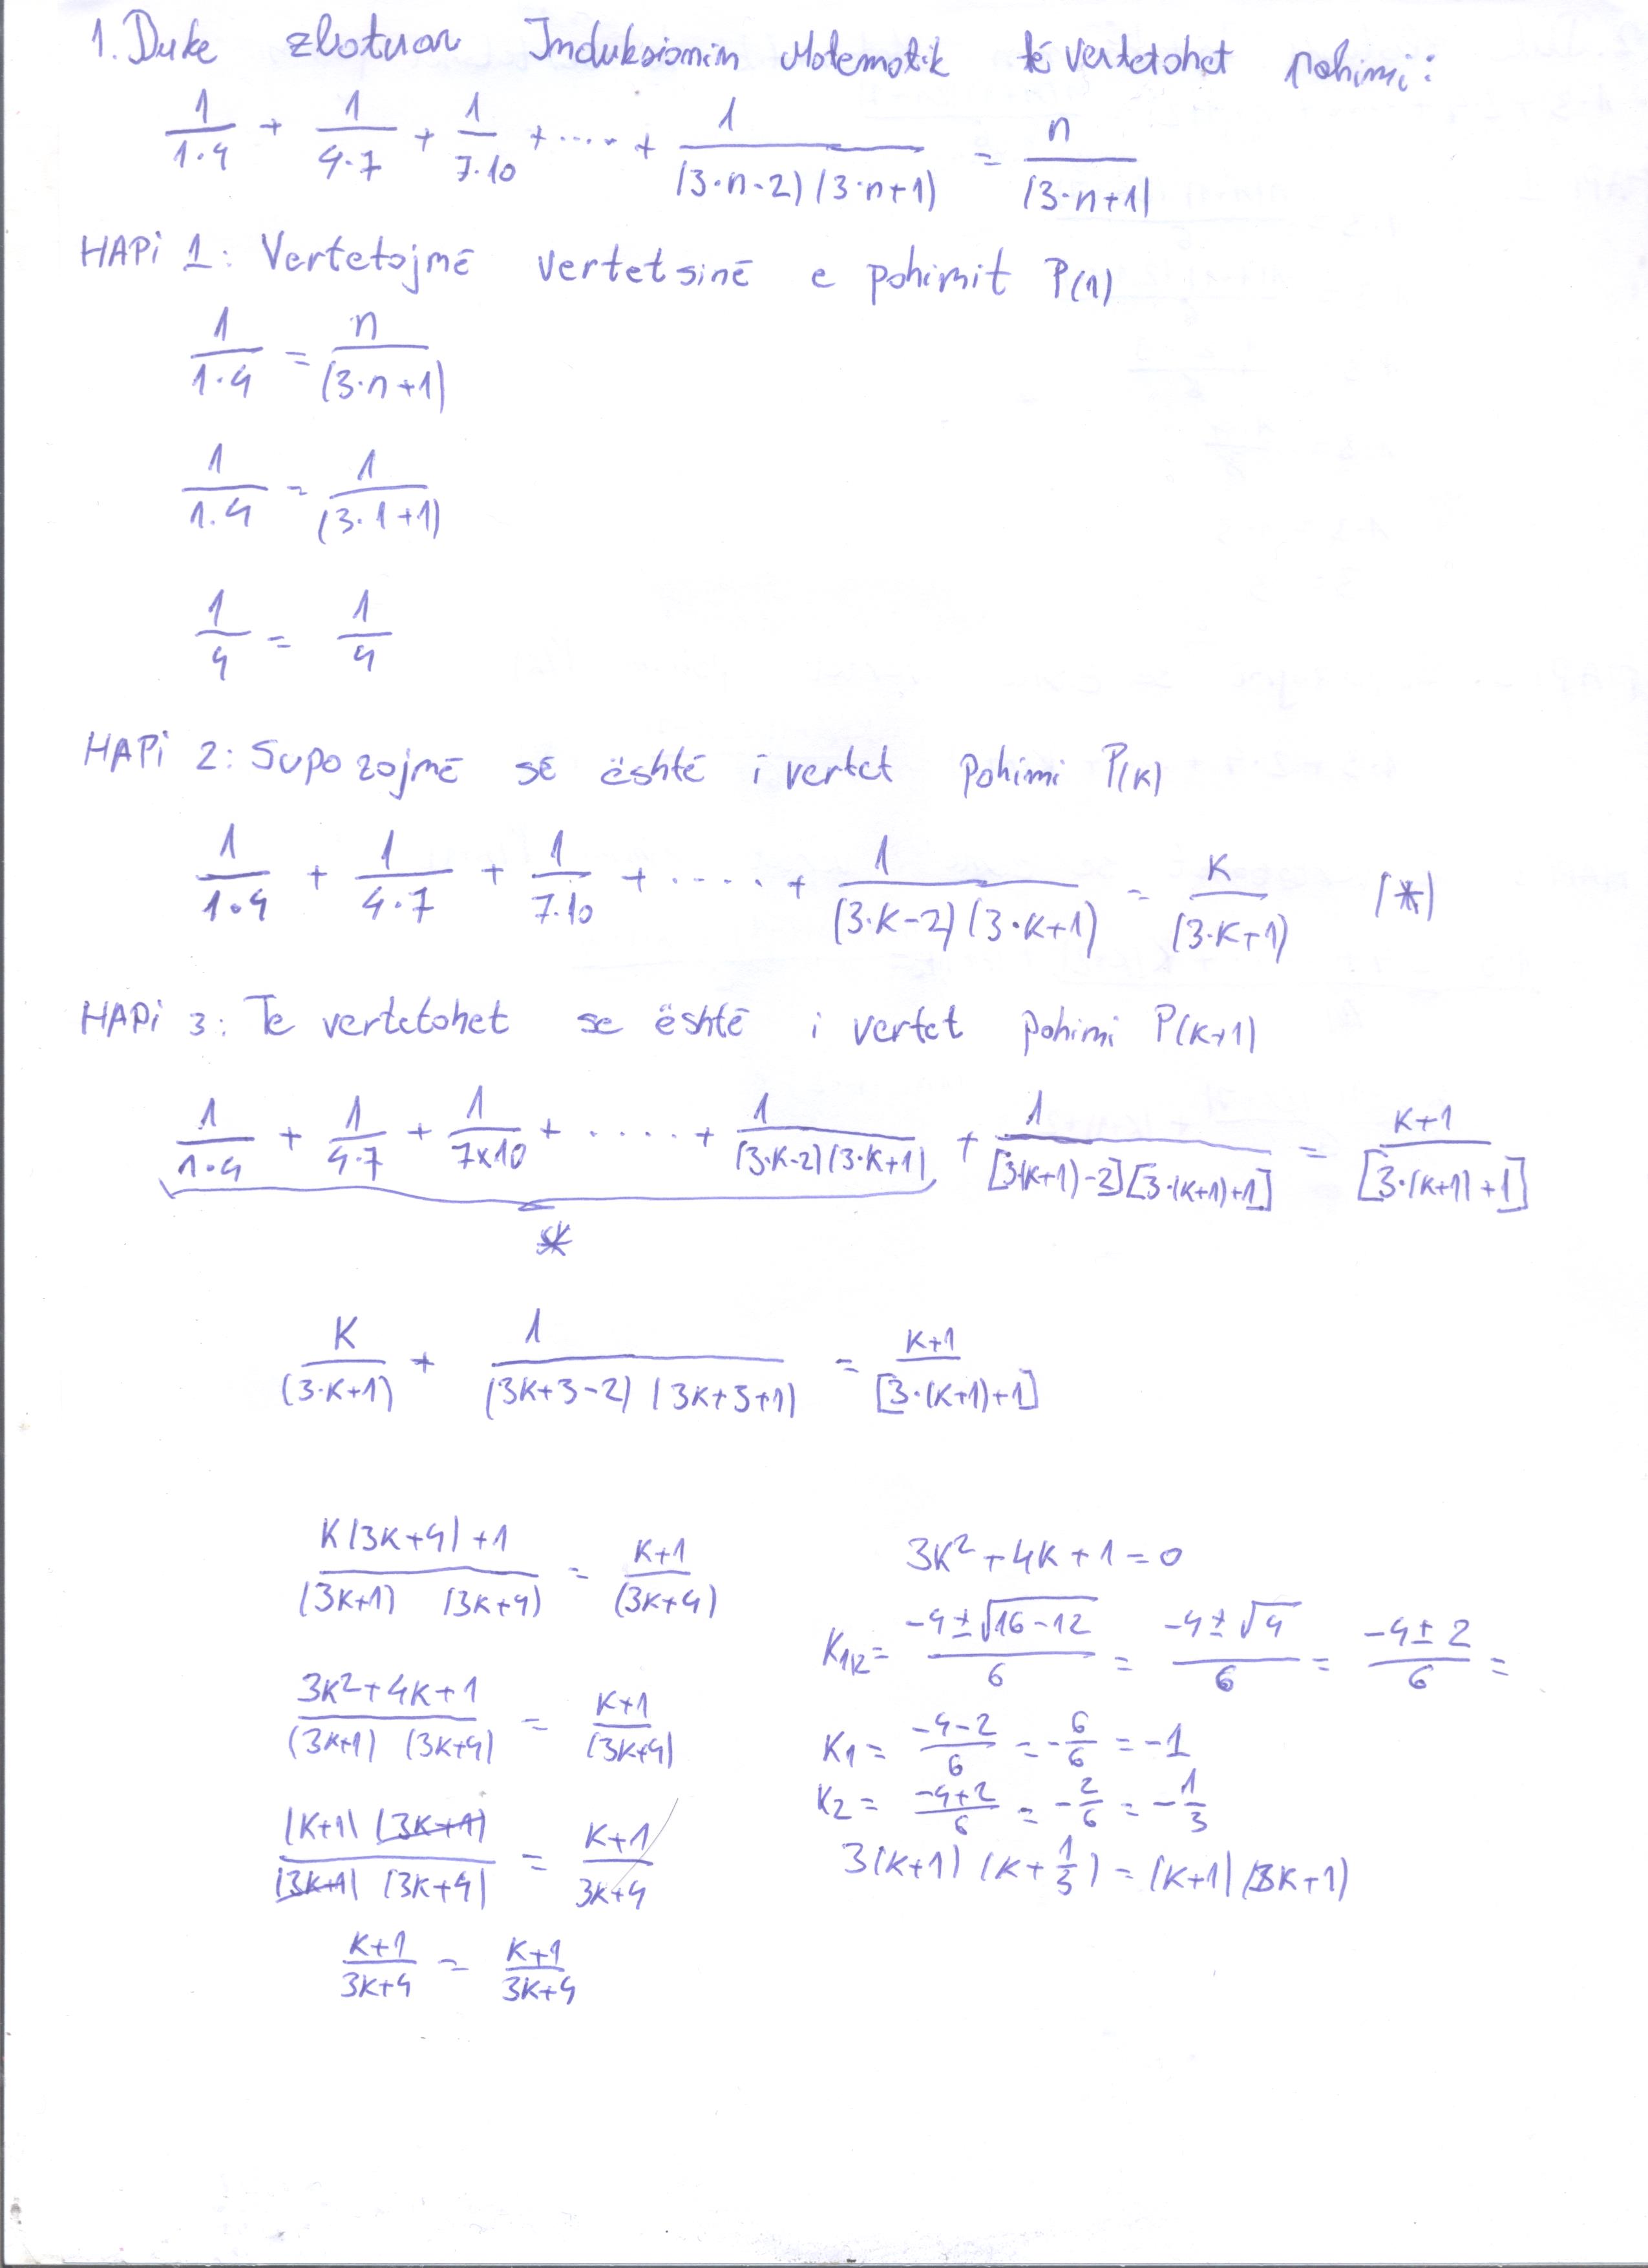 1. Duke zbatuar Induksionin Matematik të vertetohet pohimi:
1/(1·4) + 1/(4·7) + 1/(7·10) + ····· + 1/((3·n-2)(3·n+1)) = n/(3·n+1)
HAPi 1: Vertetojmë vertetsinë e pohimit P(1)
1/(1·4) = n/(3·n+1)
1/(1·4) = 1/(3·1+1)
1/4 = 1/4
HAPi 2: Supozojmë së është i vertet pohimi P(K)
1/(1·4) + 1/(4·7) + 1/(7·10) + ····· + 1/((3·K-2)(3·K+1)) = K/(3·K+1) (*)
HAPi 3: Te vertetohet se është i vertet pohimi P(K+1)
1/(1·4) + 1/(4·7) + 1/(7x10) + ····· + 1/((3·K-2)(3·K+1)) + 1/([3·(K+1)-2][3·(K+1)+1]) = K+1/[3·(K+1)+1]
*
K/(3·K+1) + 1/((3K+3-2)(3K+3+1)) = K+1/[3·(K+1)+1]
K(3K+4)+1/((3K+1)(3K+4)) = K+1/(3K+4)
3K²+4K+1/((3K+1)(3K+4)) = K+1/(3K+4)
(K+1)(3K+1)/((3K+1)(3K+4)) = K+1/3K+4
K+1/3K+4 = K+1/3K+4
3K²+4K+1=0
K1/2 = -4±√16-12/6 = -4±√4/6 = -4±2/6 =
K1 = -4-2/6 = -6/6 = -1
K2 = -4+2/6 = -2/6 = -1/3
3(K+1)(K+1/3) = (K+1)(3K+1)